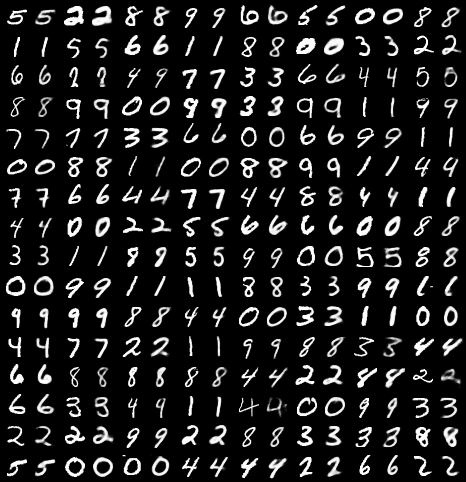 5 5 2 2 8 8 9 9 6 6 5 5 0 0 8 8
1 1 5 5 6 6 1 1 8 8 0 0 3 3 2 2
6 6 2 2 4 9 7 7 3 3 6 6 4 4 5 5
8 8 9 9 0 0 9 9 3 3 9 9 1 1 9 9
7 7 7 7 3 3 6 6 0 0 6 6 9 9 1 1
0 0 8 8 1 1 0 0 8 8 9 9 1 1 4 4
7 7 6 6 4 4 7 7 4 4 8 8 4 4 1 1
4 4 0 0 2 2 5 5 6 6 6 6 0 0 8 8
3 3 1 1 8 9 5 5 9 9 0 0 5 5 8 8
0 0 9 9 1 1 1 1 8 8 3 3 9 9 1 1
9 9 9 9 8 8 4 4 0 0 3 3 1 1 0 0
4 4 7 7 2 2 1 1 9 9 8 8 3 3 4 4
6 6 8 8 8 8 8 8 4 4 2 2 8 8 2 2
6 6 3 3 4 9 1 1 4 4 0 0 9 9 3 3
2 2 2 2 9 9 2 2 8 8 3 3 3 3 8 8
5 5 0 0 0 0 4 4 4 4 2 2 6 6 2 2